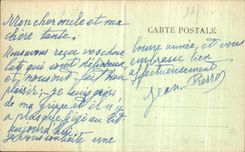 Mon cher oncle et ma
chère tante,
Nous avons reçu vos choco
lats qui sont délicieux
et, nous ont fait bien
plaisir. Je suis guéri
de ma grippe et il n'y
a presque
aujourd'hui
je vous souhaite une
CARTE POSTALE
bonne année, et vous
embrasse bien
affectueusement
Jean Pierre